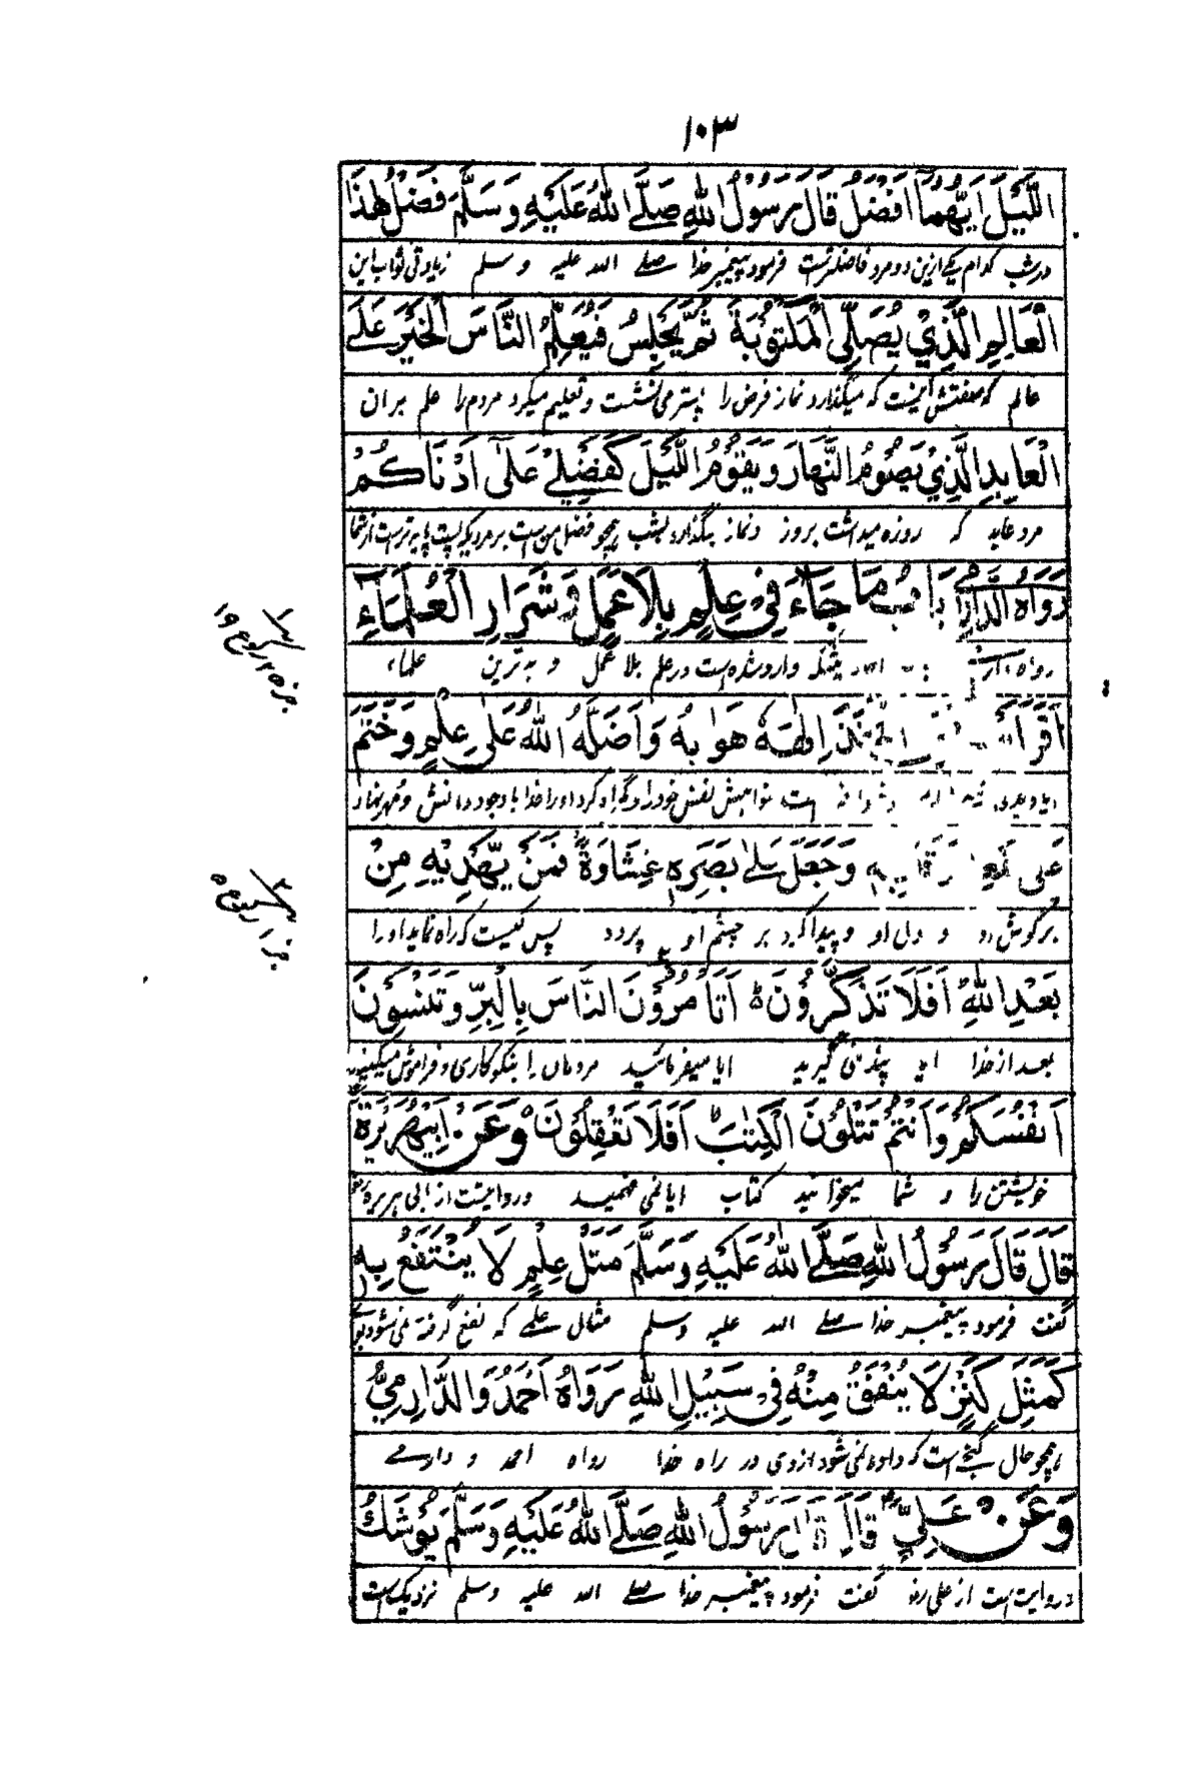 ۱۰۳
اللَّيْلَ اَيُّهُمَا اَفْضَلُ قَالَ رَسُوْلُ اللهِ صَلَّے اللهُ عَلَيْهِ وَسَلَّمَ فَضْلُ هٰذَا
درشب کدام یکے ازین دو مرد فاضلترست فرمود پیغمبر خدا صلے الله علیه وسلم زیادتی ثواب این
الْعَالِمِ الَّذِيْ يُصَلِّي الْمَكْتُوْبَةَ ثُمَّ يَجْلِسُ فَيُعَلِّمُ النَّاسَ الْخَيْرَ عَلَے
عالم که صفتش اینست که میگذارد نماز فرض را پستر می نشست و تعلیم میکرد مردم را علم بران
الْعَابِدِ الَّذِيْ يَصُوْمُ النَّهَارَ وَيَقُوْمُ اللَّيْلَ كَفَضْلِيْ عَلٰٓى اَدْنَاكُمْ
مرد عابد که روزه میداشت بروز ونماز بگذارد بشب همچو فضل من است بر مردیکه پست پایه ترست از شما
رَوَاهُ الدَّارِمِيُّ بَابُ مَا جَآءَ فِيْ عِلْمٍ بِلَا عَمَلٍ وَّشَرَارِ الْعُلَمَآءِ
رواه وارد شده است در علم بلا عمل و بدترین علماء
اِلٰهَهٗ هَوٰىهُ وَاَضَلَّهُ اللهُ عَلٰى عِلْمٍ وَّخَتَمَ
است خواهش نفس خود را و گمراه کرد او را خدا با وجود دانش و مهر نهاد
عَلٰى وَجَعَلَ عَلٰے بَصَرِهٖ غِشَاوَةً فَمَنْ يَّهْدِيْهِ مِنْ
بر گوش او و دل او و پیدا کرد بر چشم او پرده پس کیست که راه نماید او را
بَعْدِ اللهِ اَفَلَا تَذَكَّرُوْنَ ط اَتَاْمُرُوْنَ النَّاسَ بِالْبِرِّ وَتَنْسَوْنَ
بعد از خدا ایا پند نمی گیرید ایا میفرمائید مردمان را بنکو کاری و فراموش میکنید
اَنْفُسَكُمْ وَاَنْتُمْ تَتْلُوْنَ الْكِتٰبَ اَفَلَا تَعْقِلُوْنَ وَعَنْ اَبِيْ هُرَيْرَةَ
خویشتن را و شما میخوانید کتاب ایا نمی فهمید وروایتست از ابی هریره
قَالَ قَالَ رَسُوْلُ اللهِ صَلَّے اللهُ عَلَيْهِ وَسَلَّمَ مَثَلُ عِلْمٍ لَا يُنْتَفَعُ بِهٖ
گفت فرمود پیغمبر خدا صلے الله علیه وسلم مثال علمے که نفع گرفته نمی شود
كَمَثَلِ كَنْزٍ لَا يُنْفَقُ مِنْهُ فِيْ سَبِيْلِ اللهِ رَوَاهُ اَحْمَدُ وَالدَّارِمِيُّ
همچو حال گنجے است که داده نمی شود ازوی در راه خدا رواه احمد و دارمے
وَعَنْ عَلِيٍّ قَالَ قَالَ رَسُوْلُ اللهِ صَلَّے اللهُ عَلَيْهِ وَسَلَّمَ يُوْشَكُ
وروایت است از علی رض گفت فرمود پیغمبر خدا صلے الله علیه وسلم نزدیک است